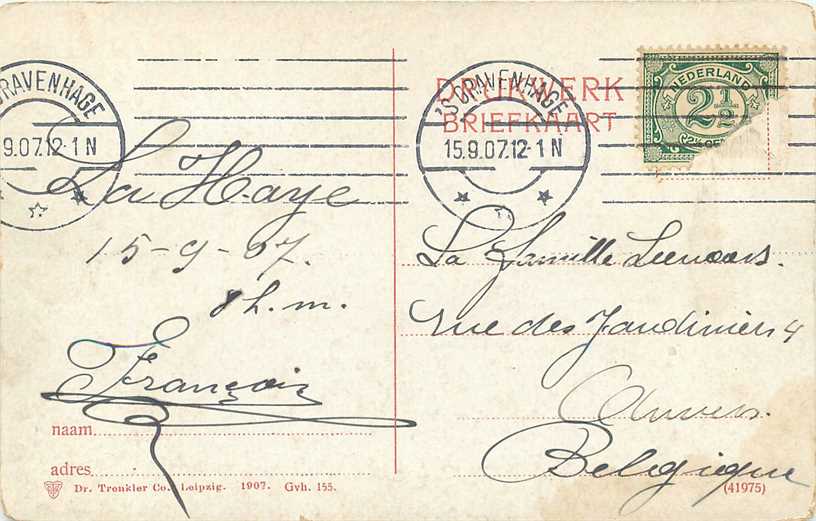 'SGRAVENHAGE
15.9.07.12-1 N
'SGRAVENHAGE
9.07.12-1 N
DRUKWERK
BRIEFKAART
NEDERLAND
2½
La Haye
15-9-07.
8 h. m.
François
La famille
rue des 4
Anvers
Belgique
naam
adres
Dr. Trenkler Co. Leipzig. 1907. Gvh. 155.
(41975)